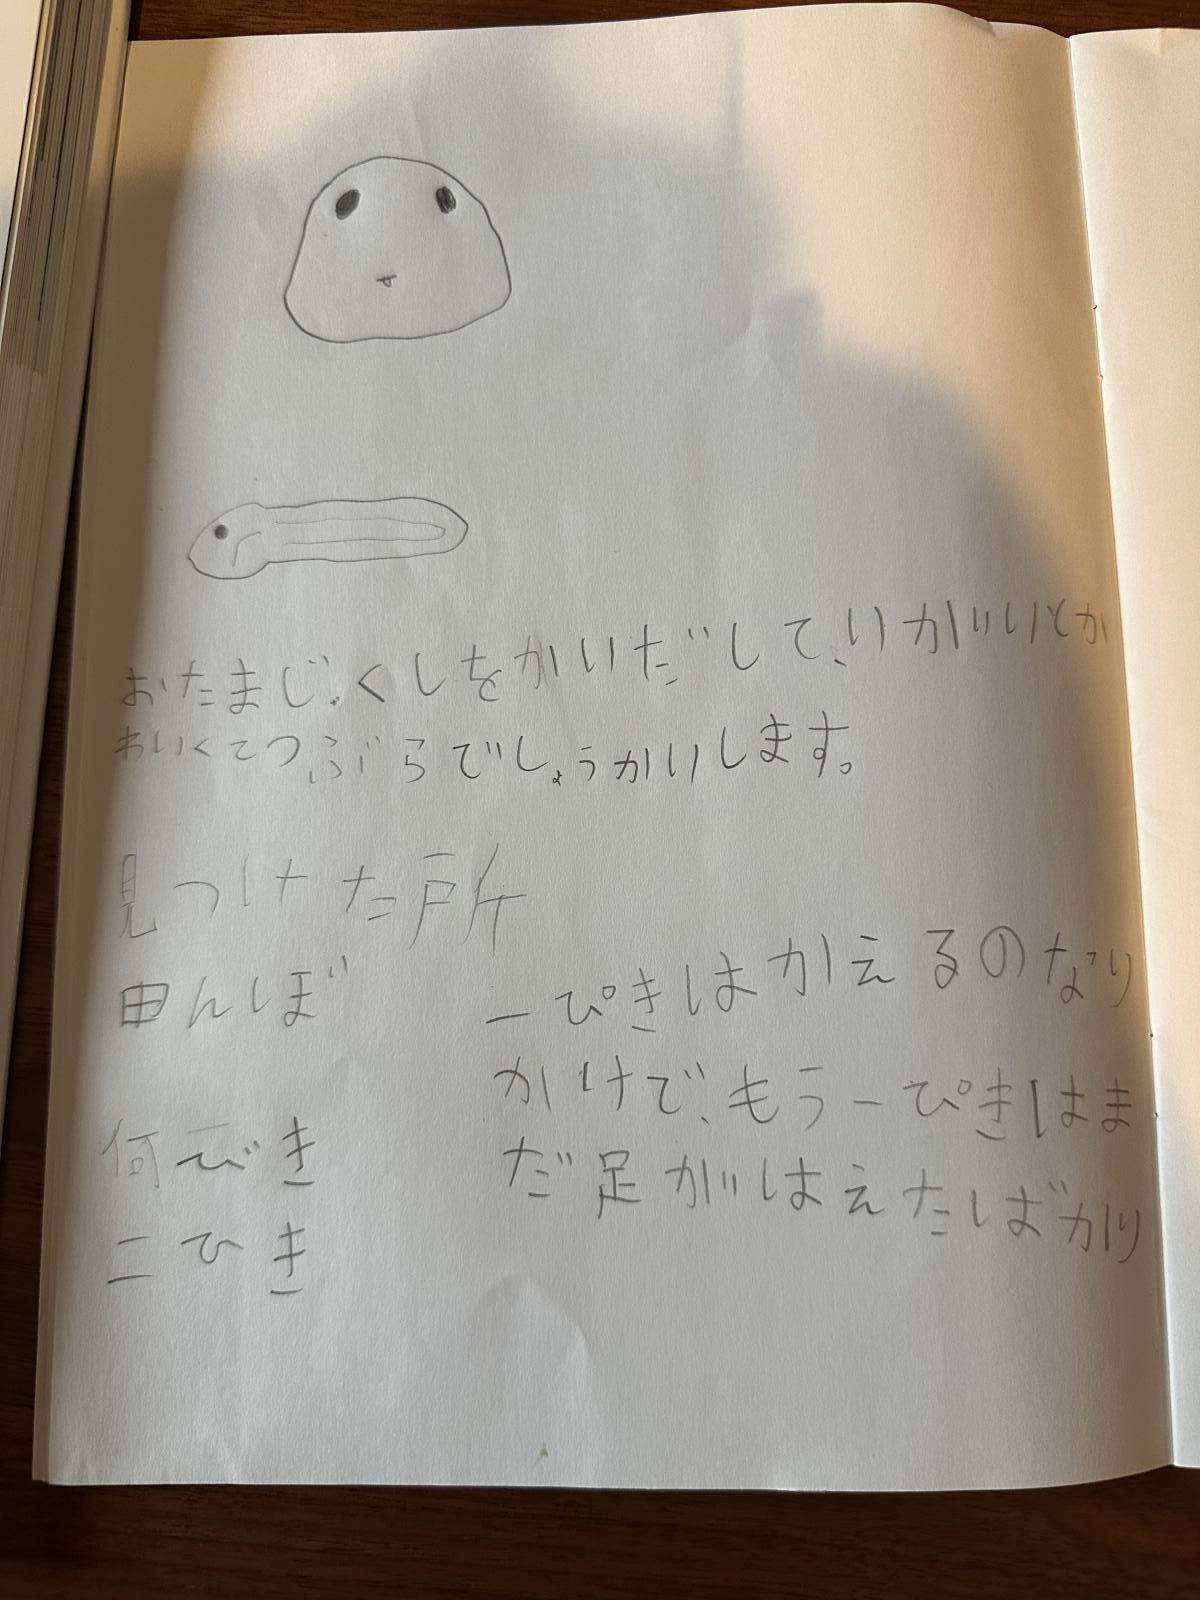 おたまじゃくしをかいだして、いがいとか
わいくてつぶらでしょうかいします。
見つけた所
田んぼ
何びき
二ひき
一ぴきはかえるのなり
かけで、もう一ぴきはま
だ足がはえたばかり